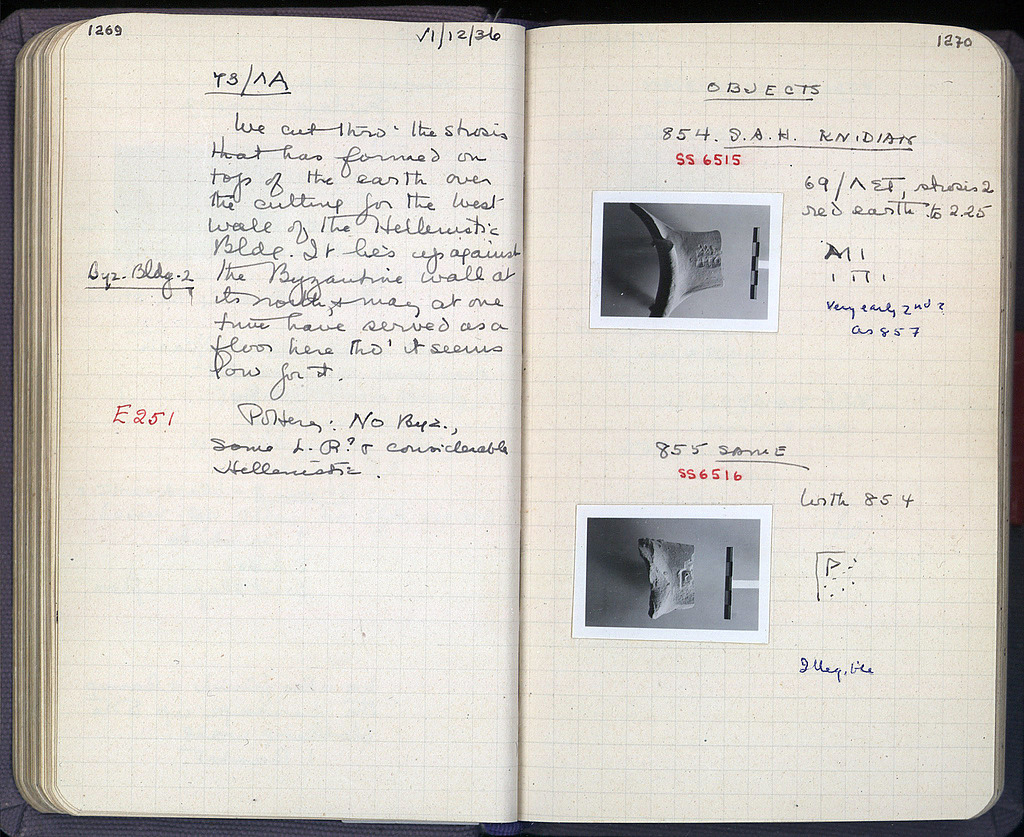 1269
VI/12/36
73/ΛA
We cut thro' the strosis
that has formed on
top of the earth over
the cutting for the West
wall of the Hellenistic
Bldg. It lies up against
Byz. Bldg. 2
the Byzantine wall at
its south, & may at one
time have served as a
floor here tho' it seems
low for it.
E 251
Pottery: No Byz.,
some L.R? & considerable
Hellenistic.
1270
OBJECTS
854. S.A.H. KNIDIAN
SS 6515
69/ΛΣΤ, strosis 2
red earth to 2.25
very early 2nd?
as 857
855 SAME
SS6516
With 854
P
Illegible